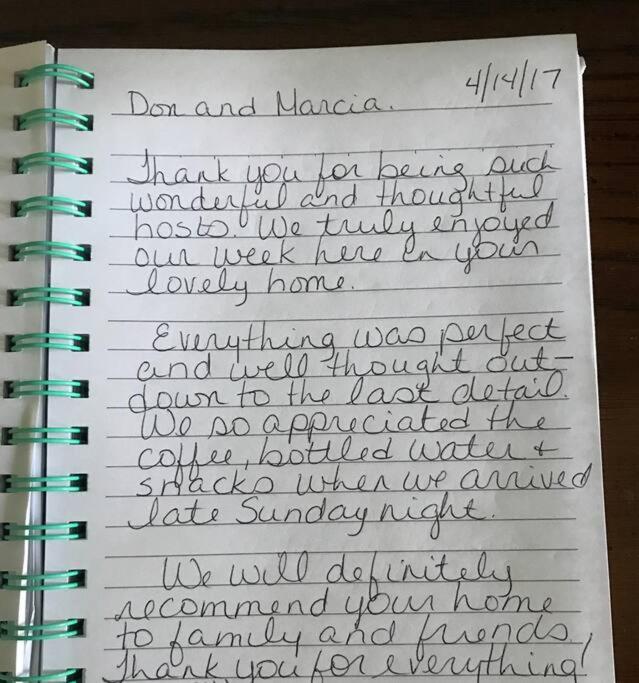 4/14/17
Don and Marcia.
Thank you for being such
wonderful and thoughtful
hosts. We truly enjoyed
our week here in your
lovely home.
Everything was perfect
and well thought out-
down to the last detail.
We so appreciated the
coffee, bottled water +
snacks when we arrived
late Sunday night.
We will definitely
recommend your home
to family and friends,
Thank you for everything!